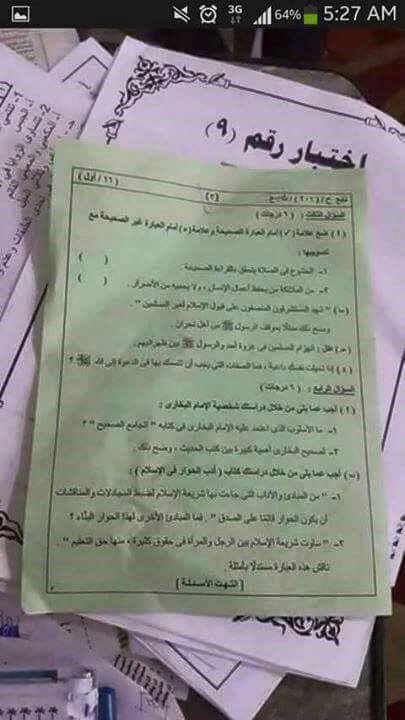 3G 64% 5:27 AM
اختبار رقم (٩)
(١٦/أول)
[٢]
السؤال الثالث : (٦ درجات)
(أ) ضع علامة (✓) أمام العبارة الصحيحة وعلامة (×) أمام العبارة غير الصحيحة مع
تصويبها :
١- الخشوع في الصلاة يتحقق بالقراءة الصحيحة ( )
٢- من الملائكة من يحفظ أعمال الإنسان ، ولا يحميه من الأضرار . ( )
(ب) " شهد المستشرقون المنصفون على قبول الإسلام لغير المسلمين " .
وضح ذلك ممثلًا بموقف الرسول ﷺ من أهل نجران .
(ج) علل : انهزام المسلمين في غزوة أحد والرسول ﷺ بين ظهرانيهم .
(د) إذا تخيلت نفسك داعية ، فما الصفات التي يجب أن تتمسك بها في الدعوة إلى الله ؟
السؤال الرابع : (٦ درجات)
(أ) أجب عما يلى من خلال دراستك شخصية الإمام البخارى :
١- ما الأسلوب الذى اعتمد عليه الإمام البخارى فى كتابه " الجامع الصحيح " ؟
٢- لصحيح البخارى أهمية كبيرة بين كتب الحديث ، وضح ذلك .
(ب) أجب عما يلى من خلال دراستك كتاب ( أدب الحوار فى الإسلام ) :
١- " من المبادئ والآداب التى جاءت بها شريعة الإسلام لضبط المجادلات والمناقشات
أن يكون الحوار قائمًا على الصدق " . فما المبادئ الأخرى لهذا الحوار البناء ؟
٢- " ساوت شريعة الإسلام بين الرجل والمرأة فى حقوق كثيرة ، منها حق التعليم " .
ناقش هذه العبارة مستدلًا بأمثلة .
[ انتهت الأسئلة ]